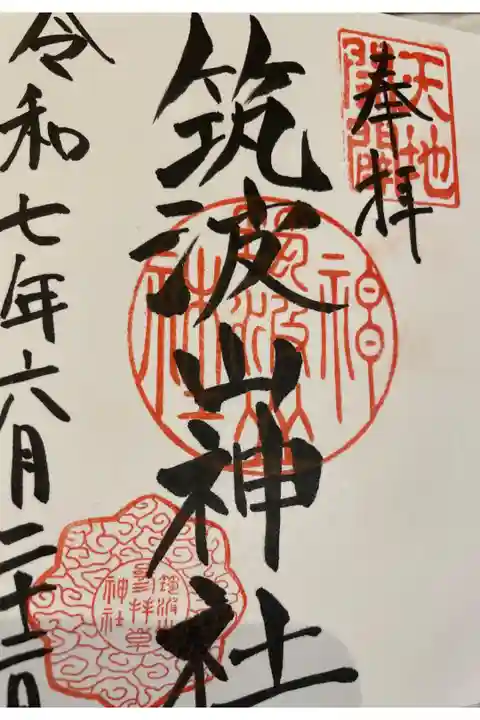 天地
開闢
奉拝
筑波山神社
令和七年六月二十二日
筑波山
神社
参拝章